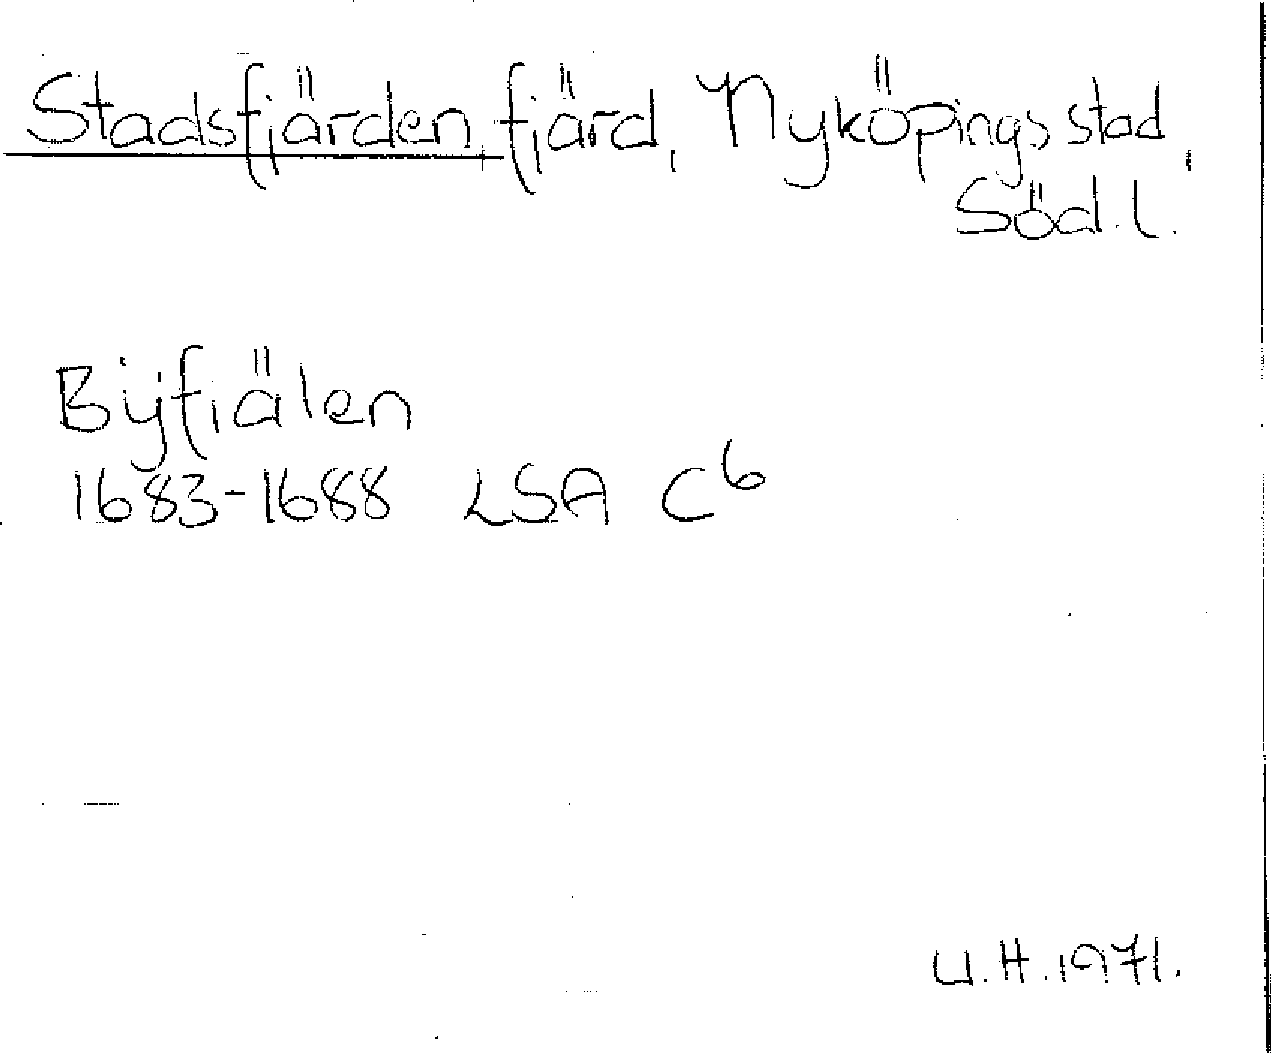 Stadsfjärden, fjärd, Nyköpings stad,
Söd. l.
Bÿfiälen
1683-1688 LSA C6
U.H. 1971.